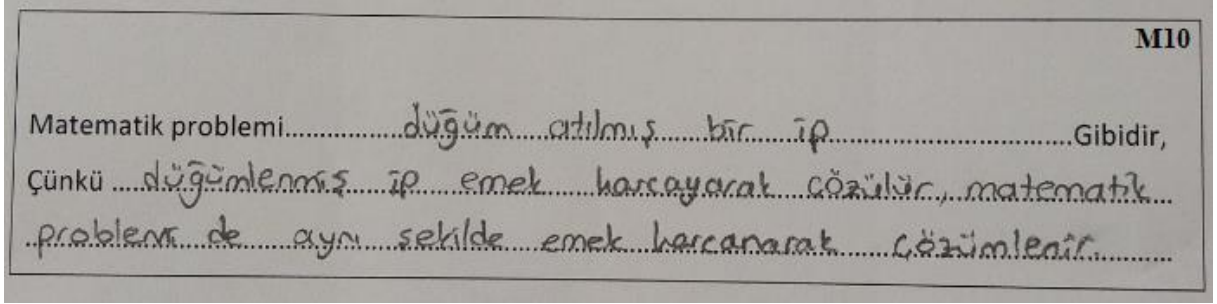 M10
Matematik problemi................düğüm....atılmış......bir......ip...................................Gibidir,
Çünkü .....düğümlenmiş ip emek harcayarak çözülür, matematik...
..problemi de aynı şekilde emek harcanarak çözümlenir...........